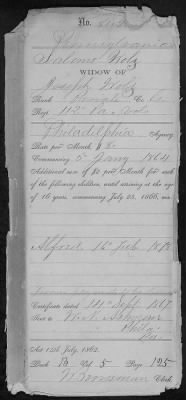 No.
Pennsylvania
Salome Wolz
WIDOW OF
Joseph Wolz
Rank Private Co.
Regt 112 Pa. Vols
Philadelphia Agency
Rate per Month $ 8
Commencing 5 Jany 1864
Additional sum of $2 per Month for each
of the following children, until arriving at the age
of 16 years, commencing July 25, 1866, viz:
Alfred 16 Feb 1878
Certificate dated 14 Sept 1867
Sent to
Phila
Pa.
Act 14th July, 1862.
Book B Vol 5 Page 125
Clerk